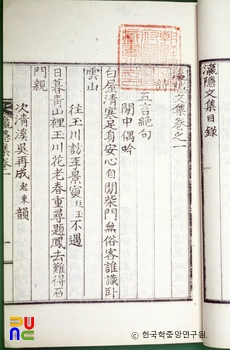 瀛隱文集目錄
瀛隱文集卷之一
詩
五言絶句
閒中偶吟
白屋淸寒是身安心自閒柴門無俗客誰識臥
雲山
往玉川訪李景寅 不遇
日暮靑山裡玉川花老春重尋題鳳去難得石
門親
次淸溪吳再成起東韻
© 한국학중앙연구원